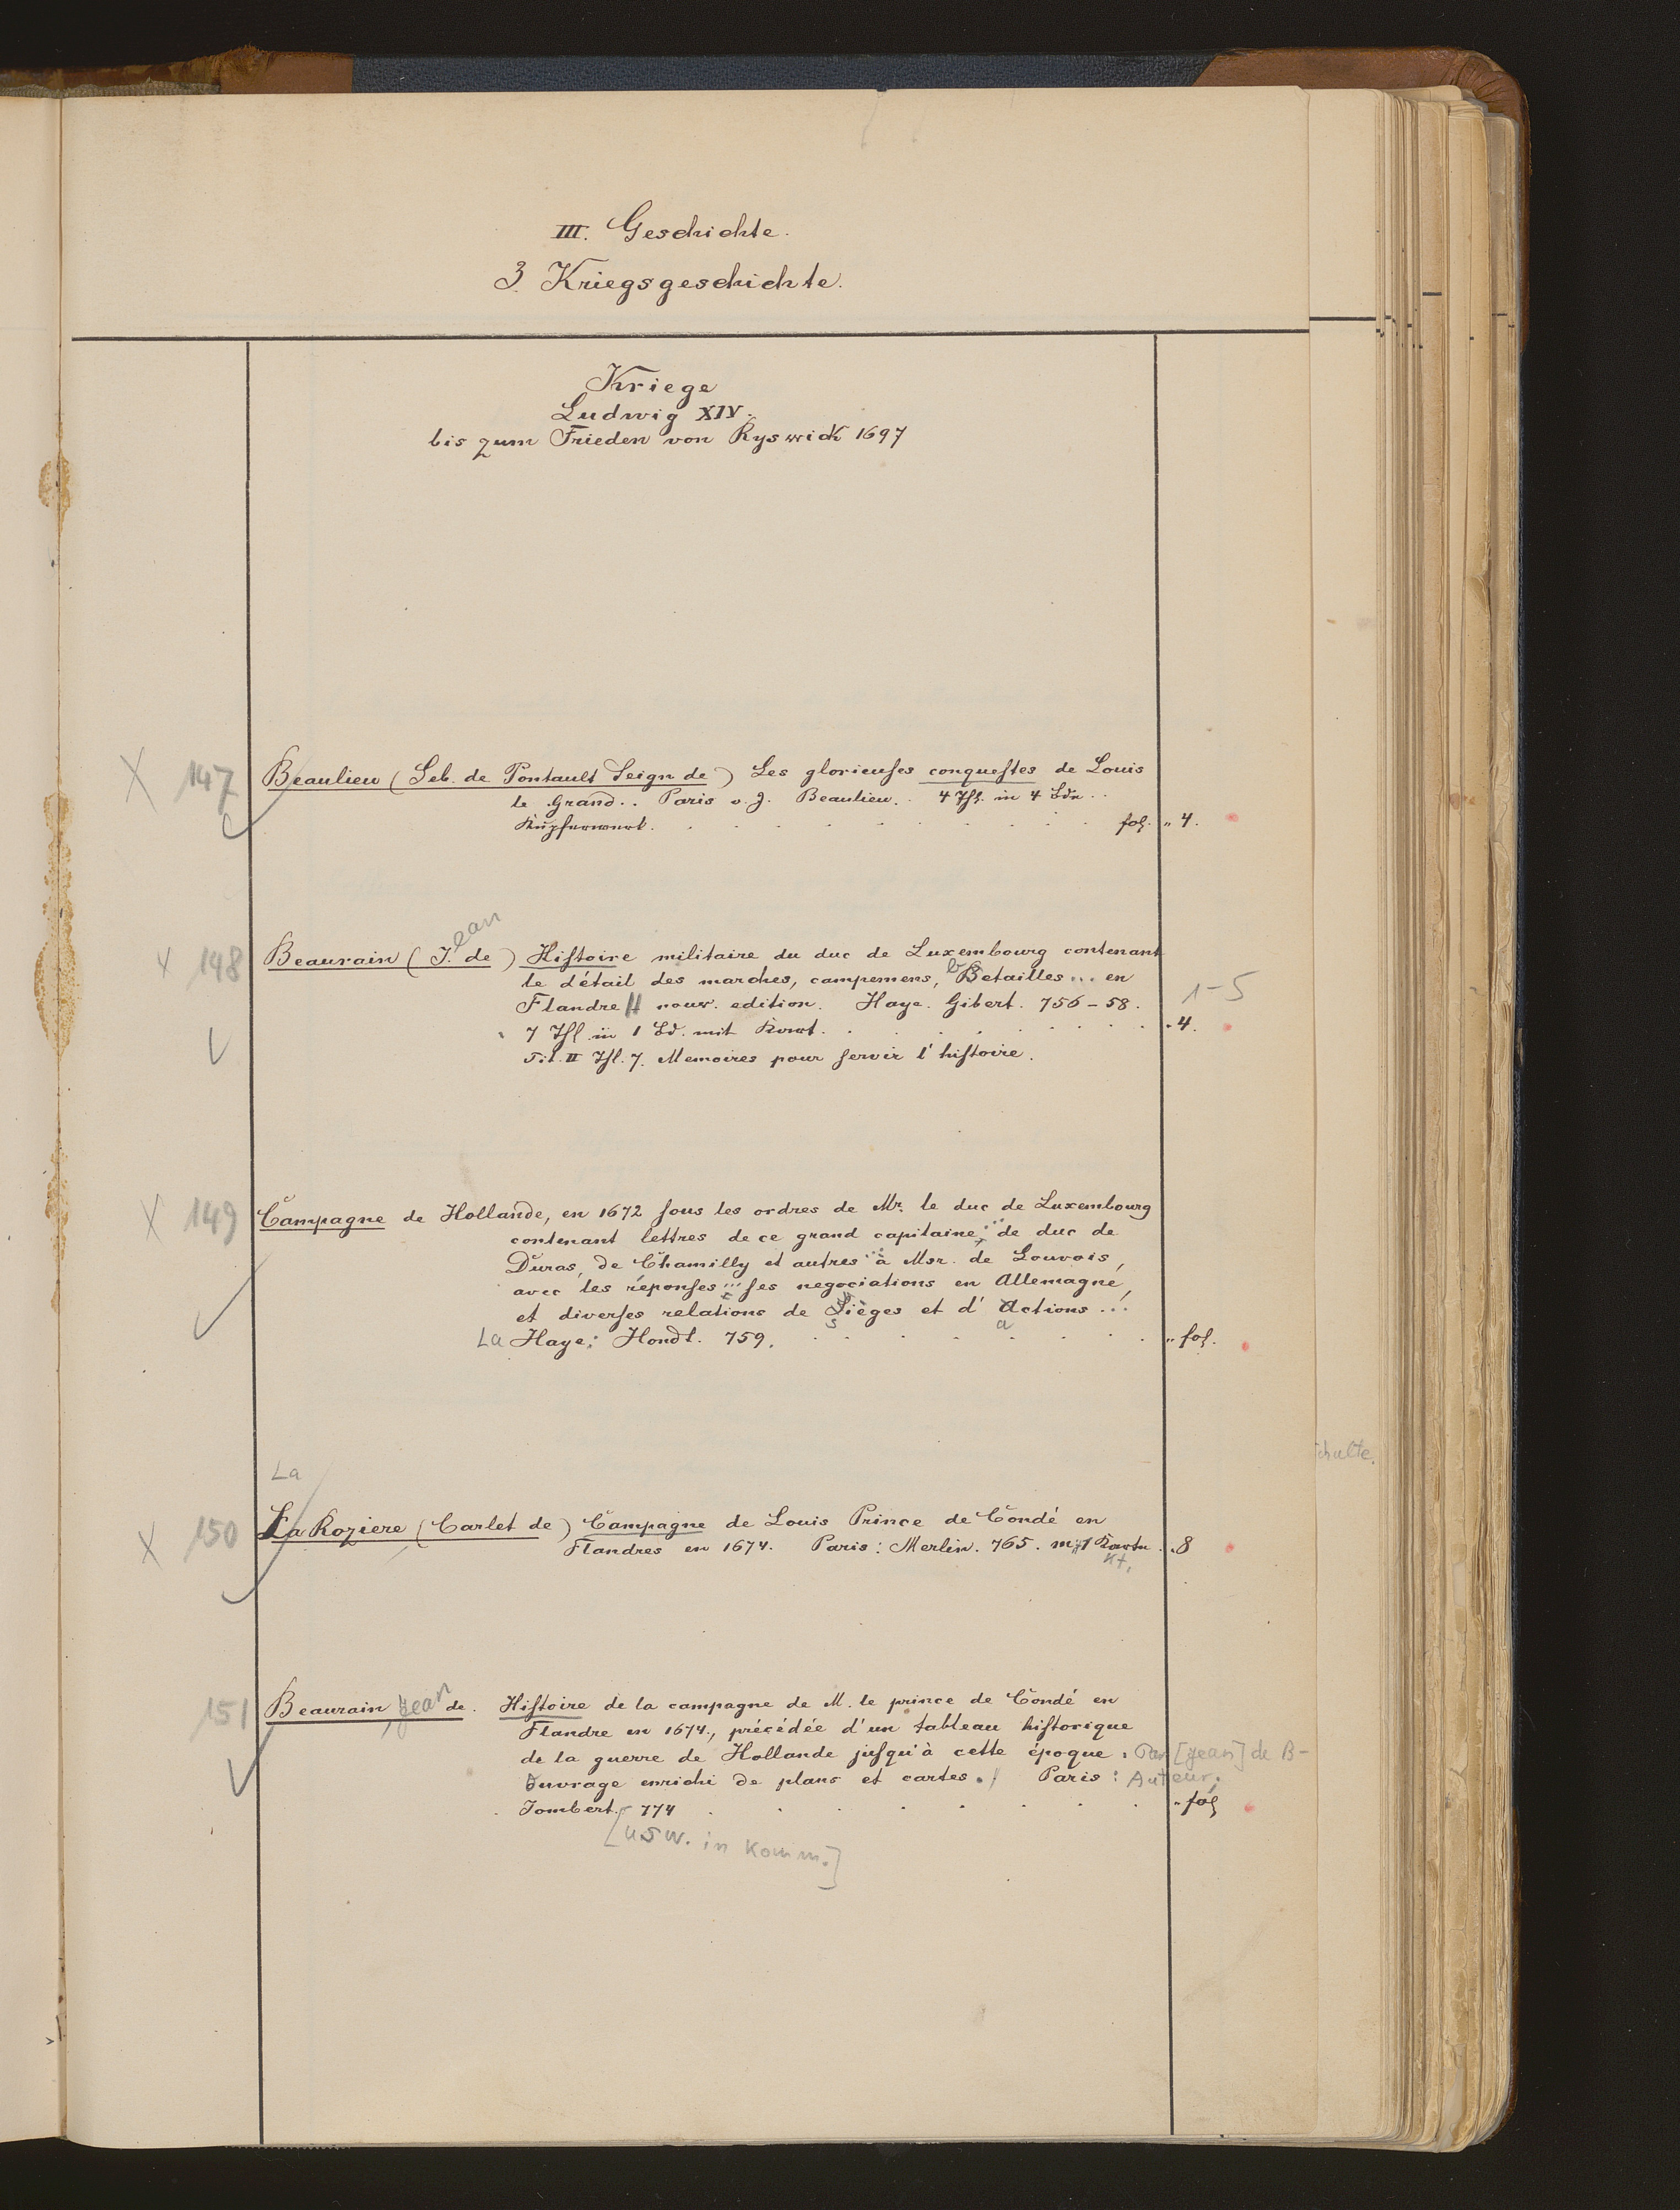 III. Geschichte.
3. Kriegsgeschichte.
Kriege
Ludwig XIV.
bis zum Frieden von Ryswick 1697
X 147 Beaulieu (Seb. de Pontault Seign de) Les glorieuſes conqueſtes de Louis
le Grand.. Paris o. J. Beaulieu.. 4 Thl. in 4 Bdn..
Kupferwerk. fol. „ 4.
X 148 Beaurain (J. de) Hiſtoire militaire du duc de Luxembourg contenant
ean
le détail des marches, campemens, Betailles... en
b
Flandre nouv. edition. Haye. Gibert. 756-58. 1-5
7 Thl in 1 Bd. mit Kart. „ 4.
Tit. II Thl. 7. Memoires pour ſervir l'hiſtoire.
X 149 Campagne de Hollande, en 1672 ſous les ordres de Mr. le duc de Luxembourg
contenant lettres de ce grand capitaine, ... de duc de
Duras, de Chamilly et autres ... à Msr. de Louvois,
avec les réponſes ... ſes negociations en Allemagne,
et diverſes relations de Sièges et d'Actions...
s a
La Haye: Hondt. 759. „ fol.
La
X 150 La Roziere (Carlet de) Campagne de Louis Prince de Condé en
Flandres en 1674. Paris: Merlin. 765. m. 1 Karte. „ 8
Kt.
151 Beaurain, Jean de. Hiſtoire de la campagne de M. le prince de Condé en
Flandre en 1674., précédée d'un tableau hiſtorique
de la guerre de Hollande juſqu'à cette époque. Par [Jean] de B-
Ouvrage enrichi de plans et cartes. Paris: Auteur.
Jombert. 774 „ fol
[usw. in Komm.]
chulte.